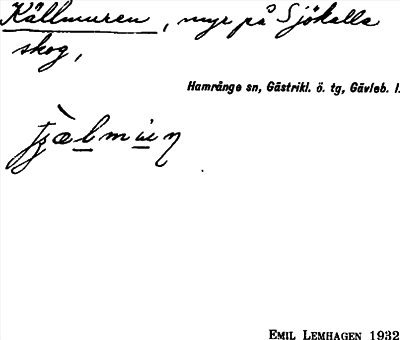 Källmuren, myr på Sjökalla
skog,
Hamrånge sn, Gästrikl. ö. tg, Gävleb. l.
EMIL LEMHAGEN 1932